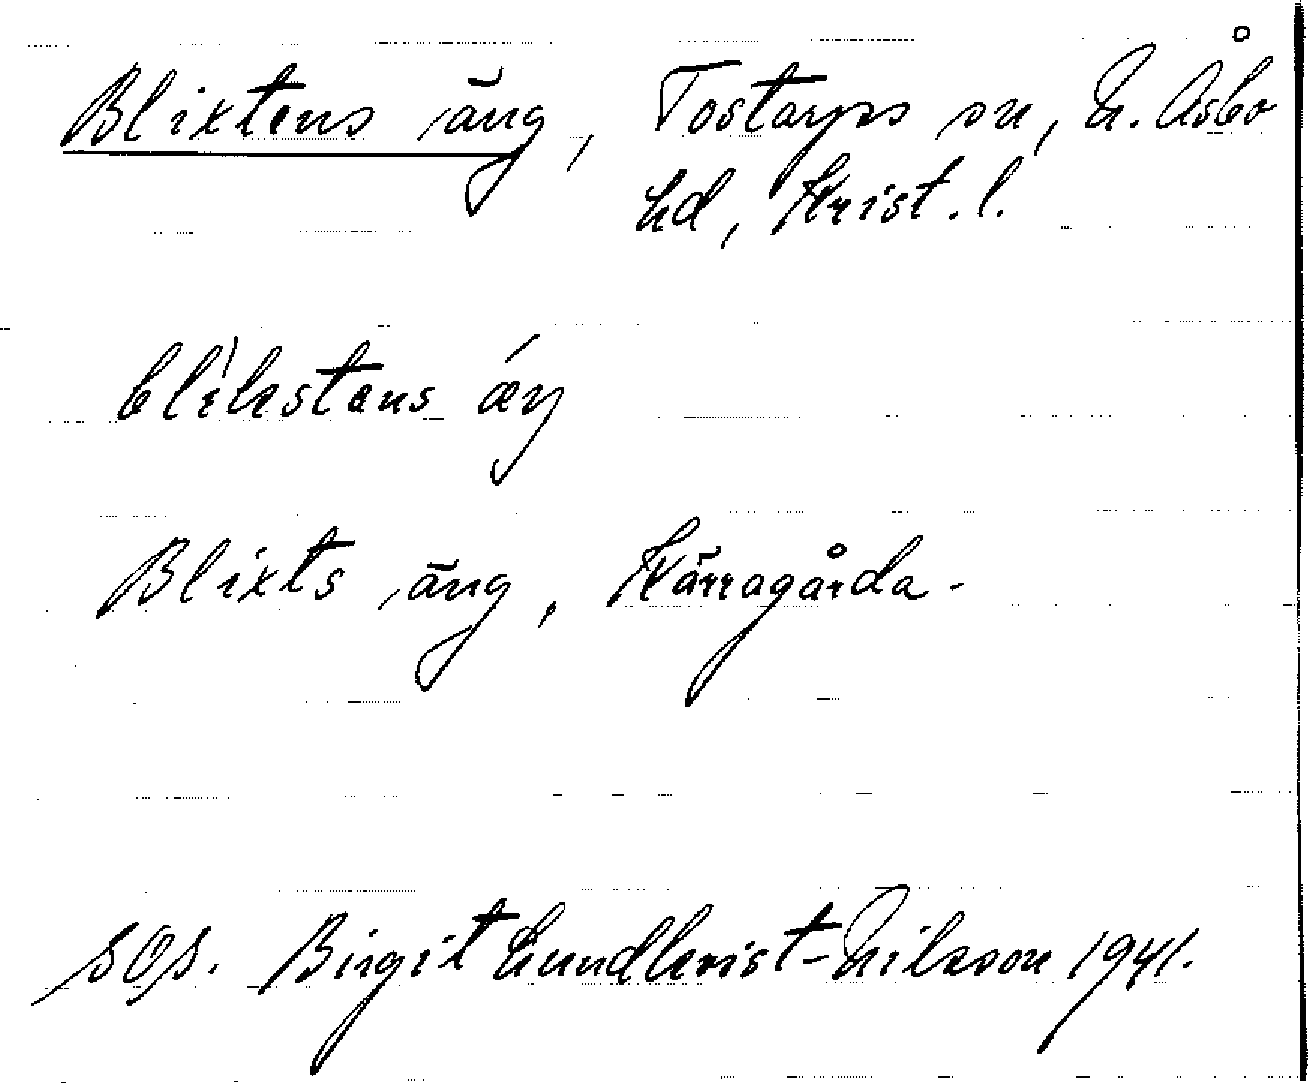 Blixtens äng, Tostarps sn, N. Åsbo
hd, Krist. l.
Blixts äng, Kärragårda.
Birgit Lundkvist-Nilsson 1941.